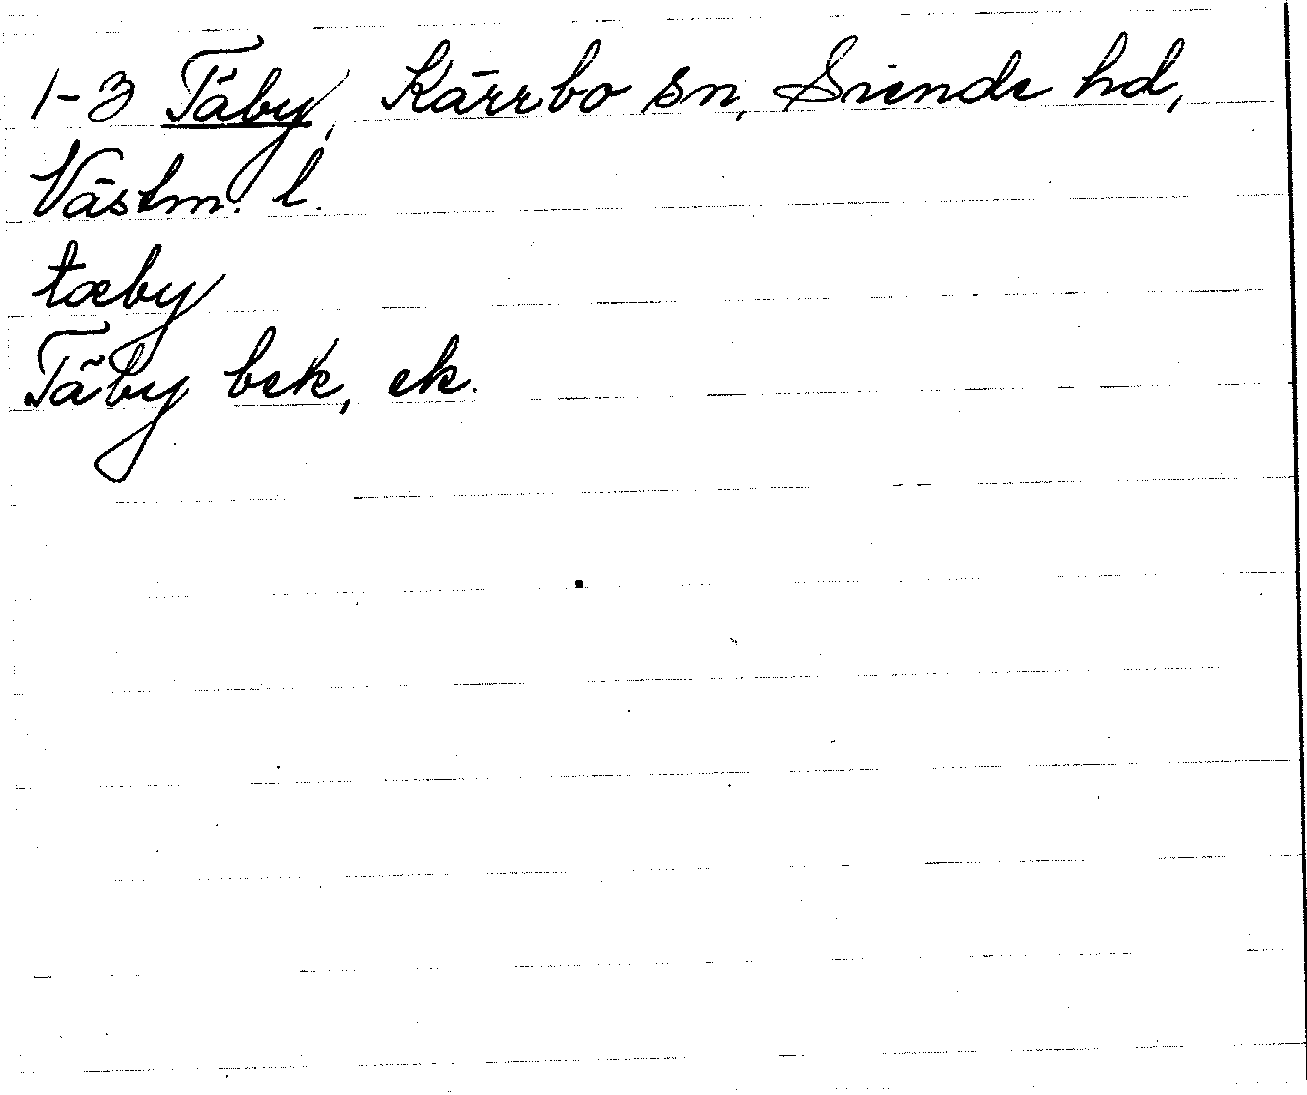 1-3 Täby, Kärrbo sn, Siende hd,
Västm. l.
tæby
Täby bek, ek.